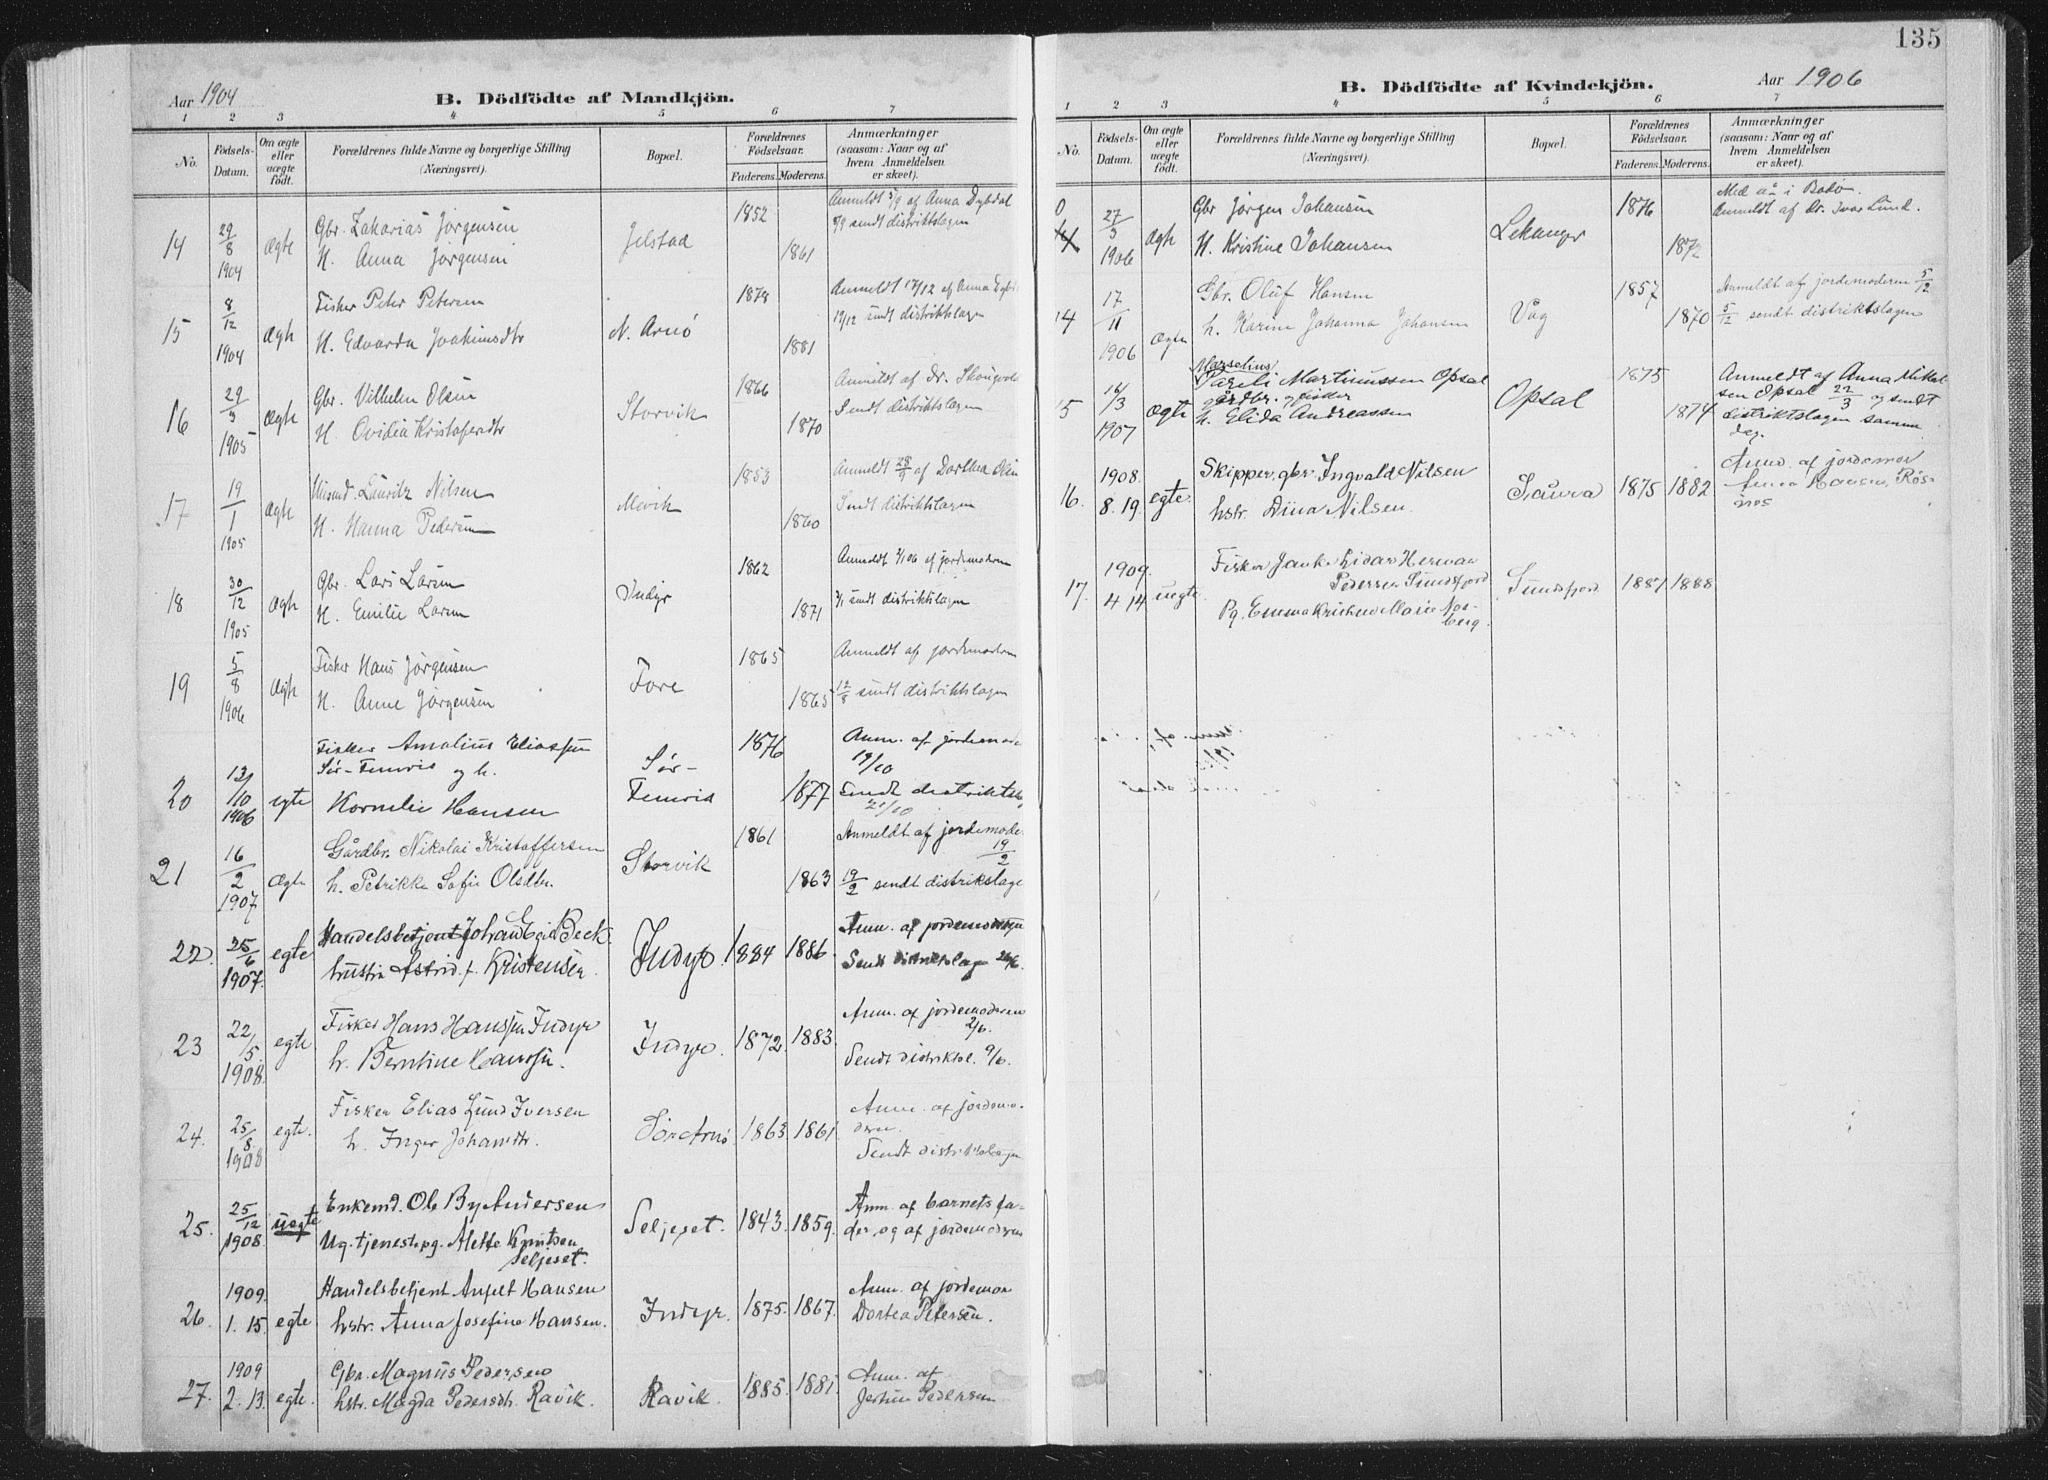 135
Aar 1904
B. Dödfödte af Mandkjön.
1 2 3 4 5 6 7
No. Födsels-Datum. Om ægte eller uægte födt. Forældrenes fulde Navne og borgerlige Stilling (Næringsvei). Bopæl. Forældrenes Födselsaar. Faderens. Moderens. Anmærkninger (saasom: Naar og af hvem Anmeldelsen er skeet).
14 29/8 1904 Ægte Gbr. Zakarias Jørgensen Jelstad 1852 Anmeldt 5/9 af Anna Dybdal
H. Anna Jørgensen 1861 sendt distriktslægen
15 8/12 1904 Ægte Fisker Peter Petersen N. Arnø 1878 Anmeldt 12/12 af Anna
H. Edvarda Joakimsdtr 1881 12/12 sendt distriktslægen
16 29/3 1905 Ægte Gbr. Vilhelm Olsen Storvik 1866 Anmeldt af dr.
H. Ovidia Kristofersdtr 1870 Sendt distriktslægen
17 19/1 1905 Ægte Lauritz Nilsen Mevik 1853 Anmeldt af Dorthea
H. Hanna Pedersen 1860 Sendt distriktslægen
18 30/12 1905 Ægte Gbr. Lars Larsen Indyr 1862 Anmeldt 2/1 06 af jordemoderen
H. Emilie Larsen 1871 2/1 sendt distriktslægen
19 5/8 1906 Ægte Fisker Hans Jørgensen Fore 1865 Anmeldt af jordemoderen
H. Anne Jørgensen 1865 12/8 sendt distriktslægen
20 13/10 1906 egte Fisker Amalius Eliassen Sør- 1876 Anm. af jordemode
Sør-Femris og h. Femris 19/10
Kornelie Hansen 1877 Sendt distriktslæg 21/10
21 16/2 1907 Ægte Gårdbr. Nikolai Kristoffersen Storvik 1861 Anmeldt af jordemode 19/2
h. Petrikke Sofie Olsdtr. 1863 19/2 sendt distriktslæge
22. 25/6 1907. egte Handelsbetjent Johan Egil Beck. Indyr. 1884 1886. Anm. af jordemoderen
hustru Astrid f. Kristensen. Sendt distriktslægen 26/6.
23 22/5. 1908. egte Fisker Hans Hanssen Indyr Indyr. 1872. 1883. Anm. af jordemoderen 2/6.
h. Berntine Hanssen. Sendt distriktsl. 9/6.
24. 25/8 1908 egte. Fisker Elias Lund Iversen Sör Arnö 1863 1861. Anm. af jordemo-
h. Inger Johansdtr. deren.
Sendt distriktslægen
25. 25/12 1908. uegte Enkemd. Ole By Andersen Seljeset. 1843. 1859. Anm. af barnets fa-
Ug. tjenestepg. Alette Knutsen der og af jordemoderen
Seljeset.
26. 1909. 1. 15. egte Handelsbetjent Anfelt Hansen Indyr. 1875. 1867. Anm. af jordemor
hstr. Anna Josefine Hansen. Dortea Petersen.
27. 1909 2. 13. egte. Gbr. Magnus Pedersen Ravik. 1885. 1881. Anm. af
hstr. Magda Pedersdtr. Ravik. Pedersen.
B. Dödfödte af Kvindekjön.
Aar 1906
1 2 3 4 5 6 7
No. Födsels-Datum. Om ægte eller uægte födt. Forældrenes fulde Navne og borgerlige Stilling (Næringsvei). Bopæl. Forældrenes Födselsaar. Faderens. Moderens. Anmærkninger (saasom: Naar og af hvem Anmeldelsen er skeet).
0 27/3 1906 Ægte Gbr Jørgen Johansen Lekanger 1876 Med a° i Bodø.
H. Kristine Johansen 1872 Anmeldt af Dr. Ivar Lund.
14 17/11 1906 Ægte Gbr. Oluf Hansen Våg 1857 Anmeldt af jordemoderen 5/12
h. Karine Johanna Johansen 1870 5/12 sendt distriktslægen
15 16/3 1907 Ægte Marselius Opsal 1875 Anmeldt af Anna Mikal-
Pareli Martinussen Opsal sen Opsal 22/3 og sendt
gårdbr. og fisker distriktslægen samme
h. Elida Andreassen 1874 dag.
16. 1908. 8. 19. egte. Skipper, gbr Ingvald Nilsen Saura 1875 1882 Anm. af jordemor
hstr. Dina Nilsen. Anna Hansen, Røs-
nes
17. 1909. 4 14 uegte Fisker Lidar Herman Sundsfjord. 1887 1888
Pedersen Sundsfjord
Pg. Emma Kristine Marie Nos-
berg.